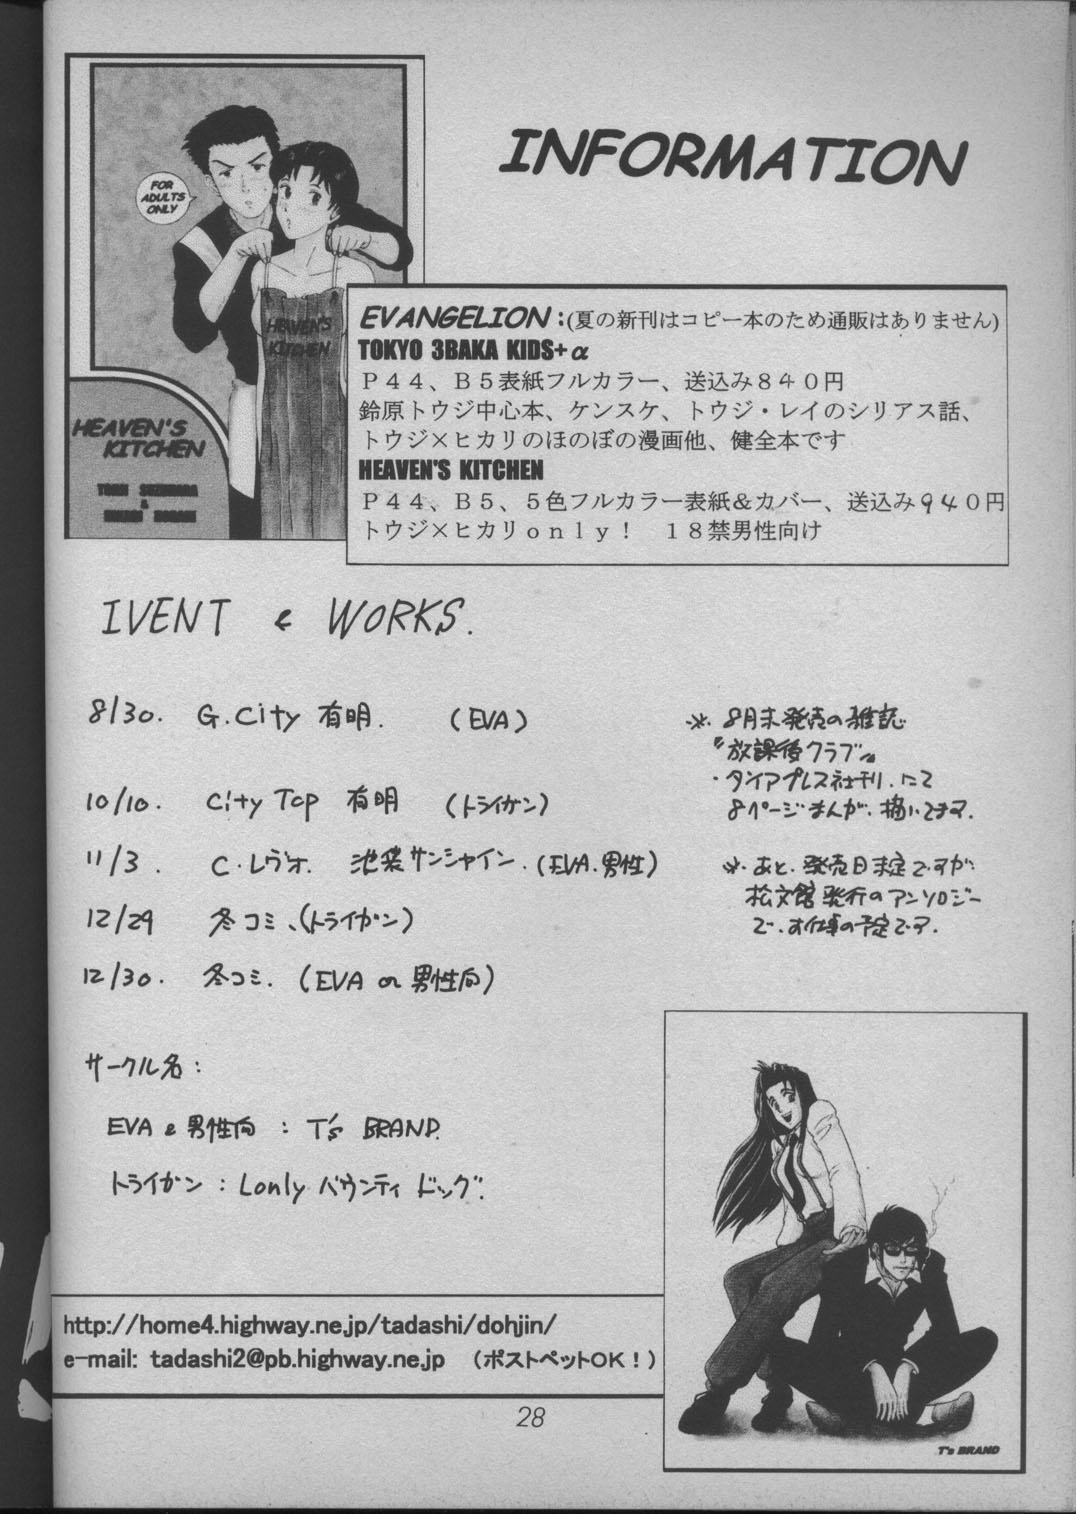 INFORMATION
FOR
ADULTS
ONLY
HEAVEN'S
KITCHEN
HEAVEN'S
KITCHEN
&
EVANGELION:(夏の新刊はコピー本のため通販はありません)
TOKYO 3BAKA KIDS+α
P44、B5表紙フルカラー、送込み840円
鈴原トウジ中心本、ケンスケ、トウジ・レイのシリアス話、
トウジ×ヒカリのほのぼの漫画他、健全本です
HEAVEN'S KITCHEN
P44、B5、5色フルカラー表紙&カバー、送込み940円
トウジ×ヒカリonly! 18禁男性向け
IVENT & WORKS.
8/30. G.City 有明. (EVA)
10/10. City Top 有明 (トライガン)
11/3. C.レヴォ. 池袋サンシャイン. (EVA.男性)
12/29 冬コミ、(トライガン)
12/30. 冬コミ. (EVA or 男性向)
※. 8月末発売の雑誌
『放課後クラブ』
・タイアプレス社刊. にて
8ページまんが. 描いてます.
※. あと. 発売日未定ですが
松文館発行のアンソロジー
で. お仕事の予定です.
サークル名:
EVA & 男性向 : T's BRAND.
トライガン : Lonly バウンティ ドッグ.
http://home4.highway.ne.jp/tadashi/dohjin/
e-mail: tadashi2@pb.highway.ne.jp (ポストペットOK!)
T's BRAND
28